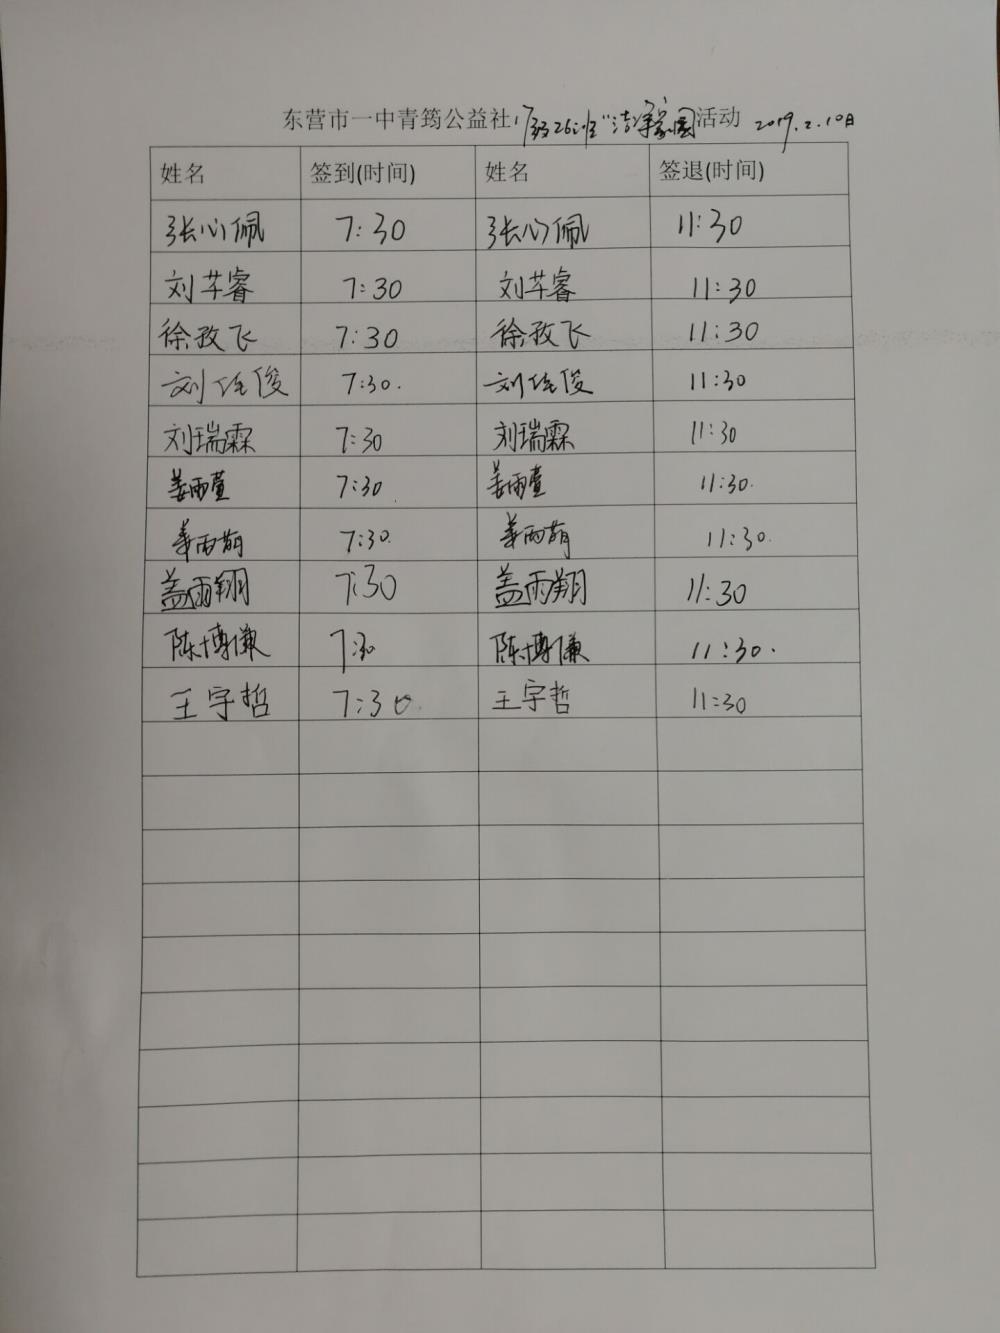 东营市一中青筠公益社17级26班“洁净家园活动 2019.2.10日
姓名 签到(时间) 姓名 签退(时间)
张心佩 7:30 张心佩 11:30
刘芊睿 7:30 刘芊睿 11:30
徐孜飞 7:30 徐孜飞 11:30
刘任俊 7:30. 刘任俊 11:30
刘瑞霖 7:30 刘瑞霖 11:30
姜雨萱 7:30 姜雨萱 11:30.
姜雨萌 7:30. 姜雨萌 11:30.
盖雨翔 7:30 盖雨翔 11:30
陈博谦 7:30 陈博谦 11:30.
王宇哲 7:30. 王宇哲 11:30